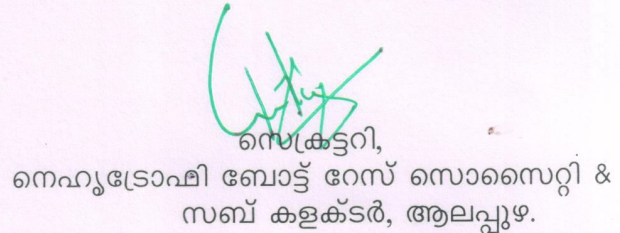 സെക്രട്ടറി,
നെഹൃട്രോഫി ബോട്ട് റേസ് സൊസൈറ്റി &
സബ് കളക്ടർ, ആലപ്പുഴ.